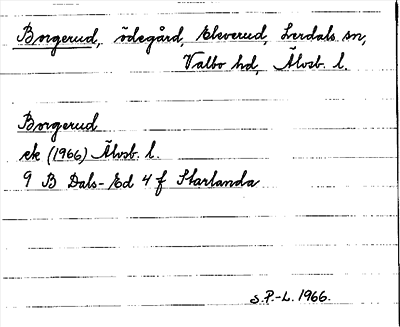 Borgerud, ödegård, Eleverud, Lerdals sn,
Valbo hd, Älvsb. l.
Borgerud
ek (1966) Älvsb. l.
9 B Dals-Ed 4 f Starlanda
S.P.-L. 1966.